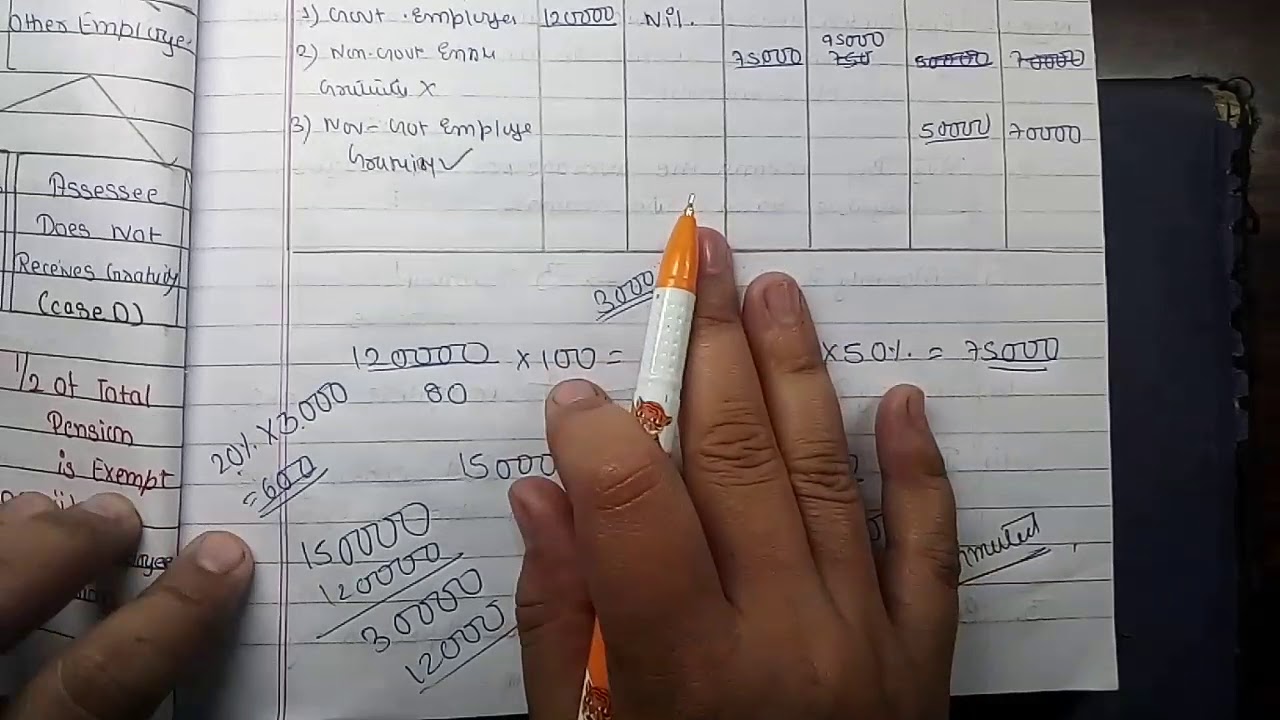 other Employee
Assessee
Does Not
Receives Gratuity
(case D)
1/2 of Total
Pension
is Exempt
1) Govt. Employee 120000 Nil.
2) Non-Govt Emp 75000 95000 750 50000 70000
Gratuity X
3) Non-Got Employe 50000 70000
Gratuity ✓
3000
120000 × 100 = × 50% = 75000
80
20% × 3000
= 600
15000
150000
120000
30000
12000